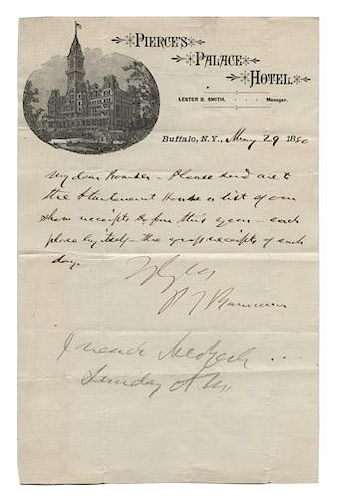 PIERCE'S
PALACE
HOTEL.
LESTER B. SMITH, Manager.
Buffalo, N.Y., May 29 1880
My dear - Please send me to
the House a list of our
show receipts so far this year - each
place by itself - the gross receipts of each
day.
Truly Yrs
P T Barnum
I reach
Sunday A.M.